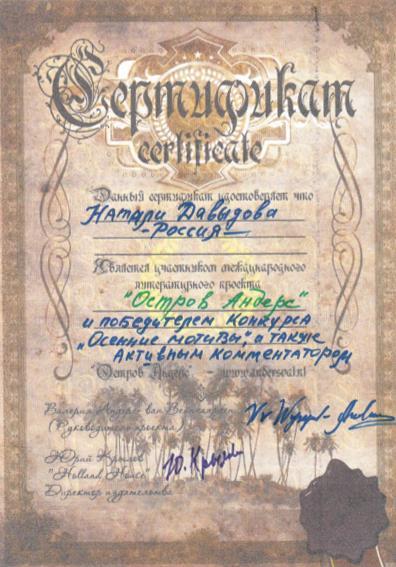 Сертификат
certificate
Данный сертификат удостоверяет что
Натали Давыдова
-Россия-
Является участником международного
литературного проекта
"Остров Андерс"
и победителем Конкурса
„Осенние мотивы", а также
Активным комментатором
"Остров Андерс" - www.andersval.nl
Валерия Андерс-ван
(Руководитель проекта)
Юрий Крылов
"Holland House"
Директор издательства
Ю. Крылов